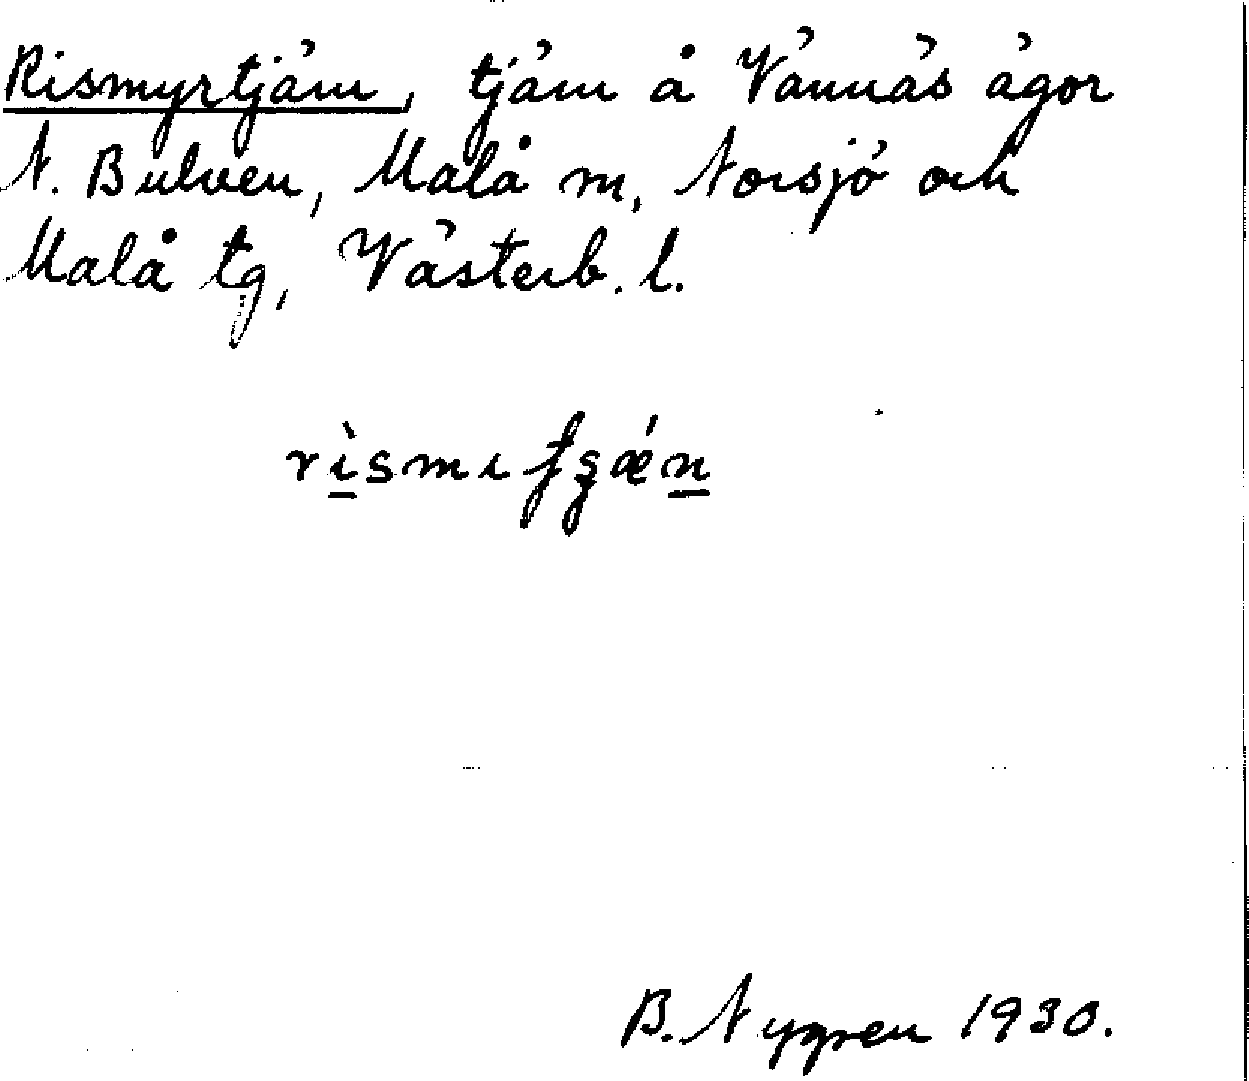 Rismyrtjärn, tjärn å Vännäs ägor
N. Bulven, Malå m, Norsjö och
Malå tg, Västerb. l.
B. Nygren 1930.